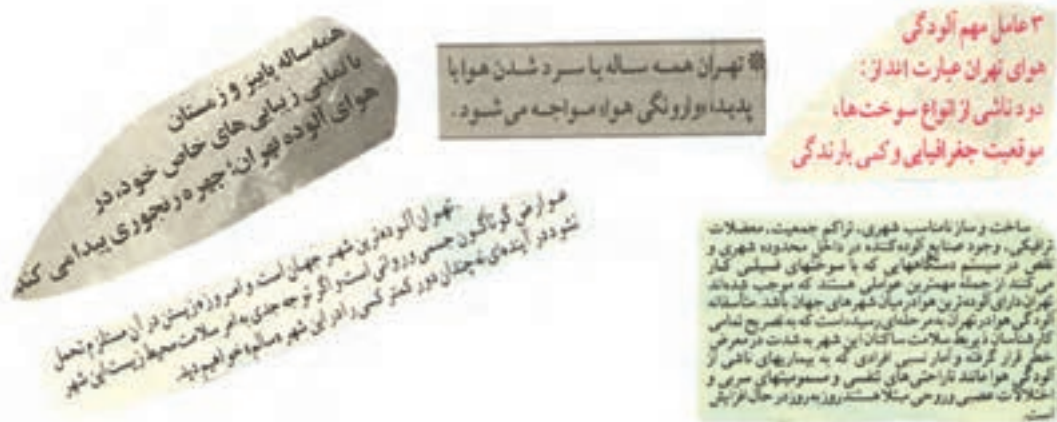 ۳ عامل مهم آلودگی
هوای تهران عبارت انداز:
دود ناشی از انواع سوخت‌ها،
موقعیت جغرافیایی و کمی بارندگی
* تهران همه ساله با سرد شدن هوا با
پدیده «وارونگی هوا» مواجه می‌شود.
همه ساله پاییز و زمستان
با تمامی زیبایی‌های خاص خود، در
هوای آلوده تهران؛ چهره رنجوری پیدا می‌کند
تهران آلوده‌ترین شهر جهان است و امروزه زیستن در آن مستلزم تحمل
عوارض گوناگون جسمی و روانی است و اگر توجه جدی به امر سلامت محیط زیست این شهر
نشود در آینده‌ای نه چندان دور کمتر کسی را در این شهر «سالم» خواهیم دید.
ساخت و ساز نامناسب شهری، تراکم جمعیت، معضلات
ترافیکی، وجود صنایع آلوده‌کننده در داخل محدوده شهری و
نقص در سیستم دستگاههایی که با سوختهای فسیلی کار
می‌کنند از جمله مهمترین عواملی هستند که موجب شده‌اند
تهران دارای آلوده‌ترین هوا در میان شهرهای جهان باشد. متأسفانه
آلودگی هوا در تهران به مرحله‌ای رسیده است که به تصریح تمامی
کارشناسان ذیربط سلامت ساکنان این شهر به شدت در معرض
خطر قرار گرفته و آمار نسبی افرادی که به بیماریهای ناشی از
آلودگی هوا مانند ناراحتی‌های تنفسی و مسمومیتهای سربی و
اختلالات عصبی و روحی مبتلا هستند روز به روز در حال افزایش
است.